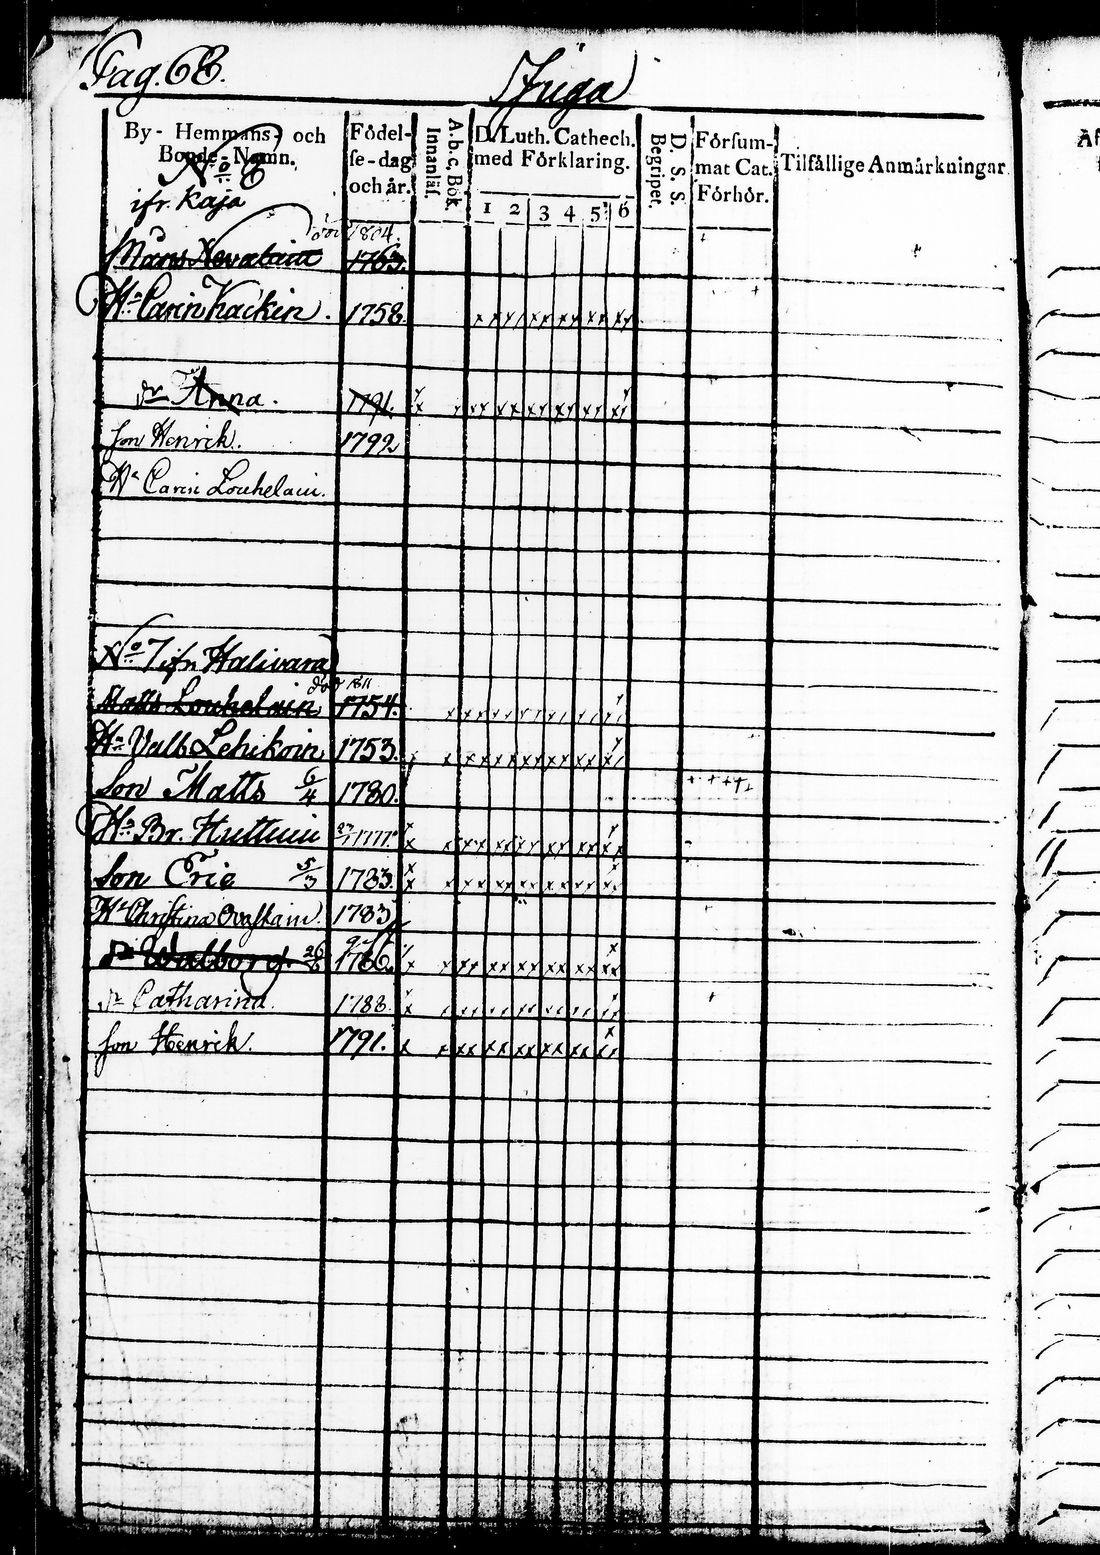 Pag. 68.
By- Hemmans- och
Bonde-Namn.
Födel-
se-dag
och år.
A.b.c, Bok.
Innanläs.
D. Luth. Cathech.
med Förklaring.
1 2 3 4 5 6
D. S. S.
Begripet.
Försum-
mat Cat.
Förhör.
Tilfällige Anmärkningar
No 8
ifr. Kaja
död 1804.
Måns 1763.
Hu Carin 1758.
dr Anna. 1791.
Son Henrik. 1792
Hu Carin Louhelain.
No 7 ifr Halivara
död 1811
Matts Louhelain 1754.
Hu Valb Lehikoin 1753.
Son Matts 6/4 1780.
Hu Br. Huttuin
Son Eric 5/3 1783.
Hu Christina 1783
dr Walborg. 26
dr Catharina. 1788.
Son Henrik. 1791.